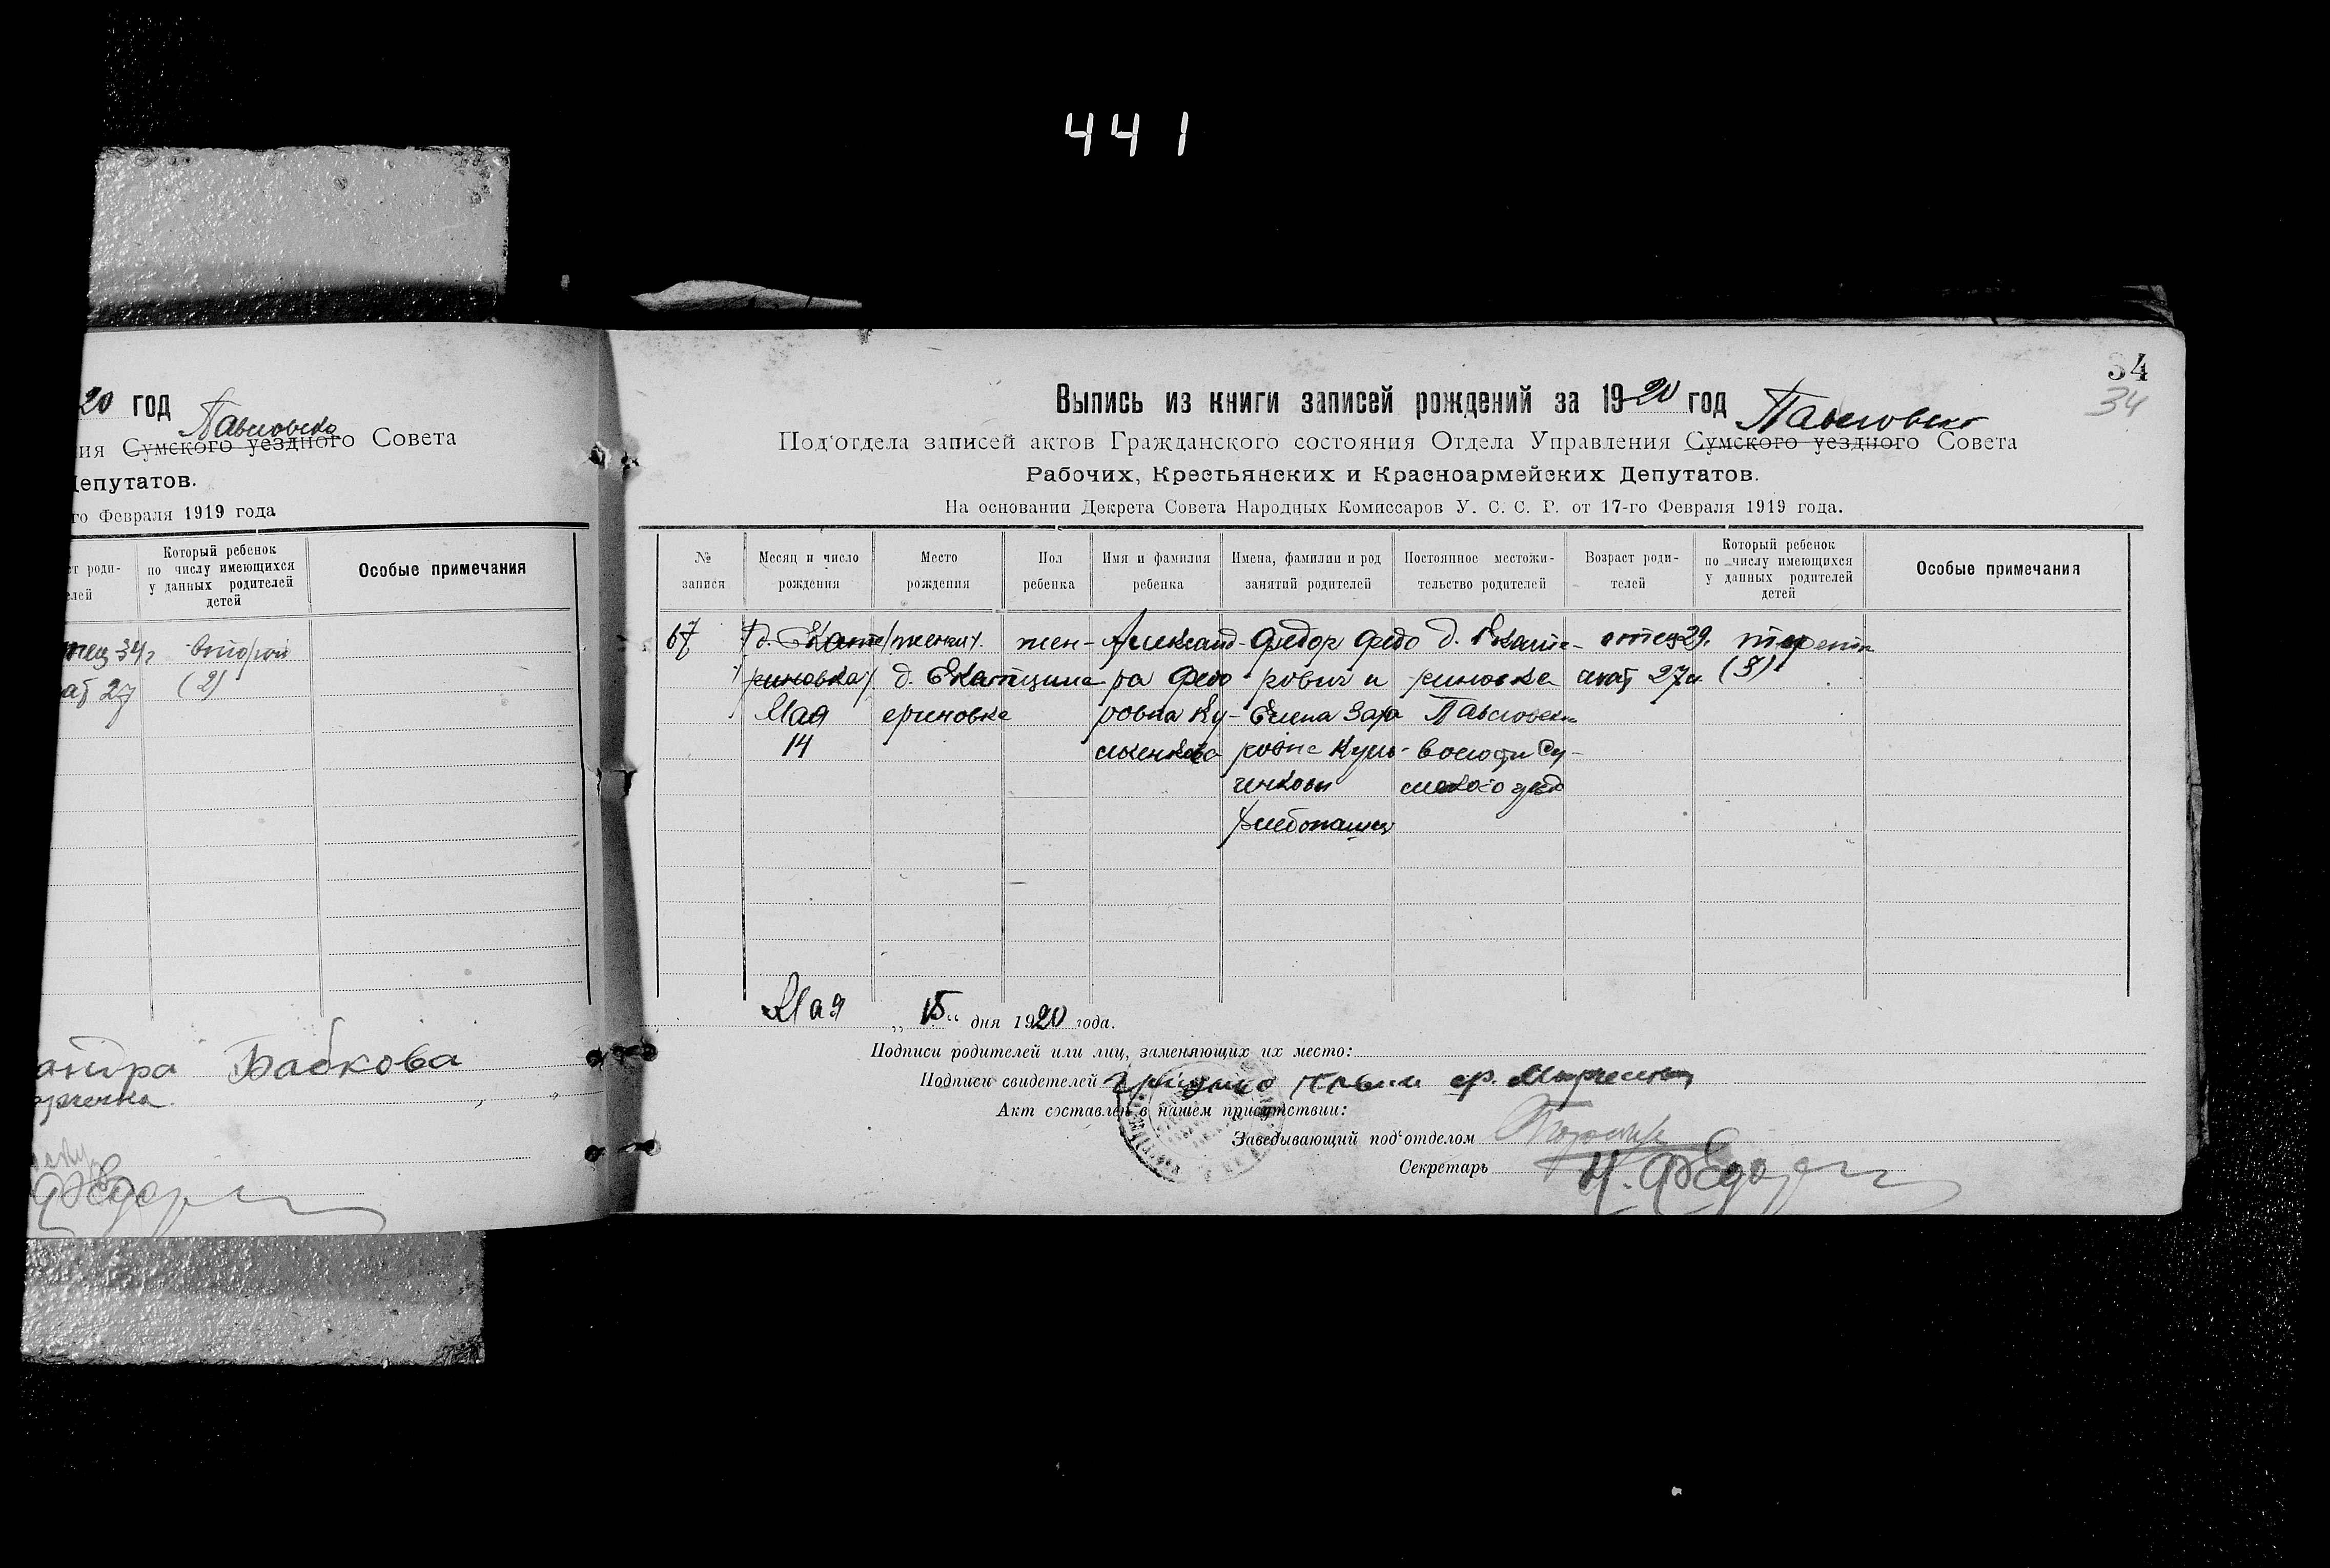 441
20 год
Павловско
ия Сумского уездного Совета
епутатов.
го Февраля 1919 года
ст роди-
елей
Который ребенок
по числу имеющихся
у данных родителей
детей
Особые примечания
34 г второй
27 (2)
Бабкова
34
34
Выпись из книги записей рождений за 1920 год Павловско
Под'отдела записей актов Гражданского состояния Отдела Управления Сумского уездного Совета
Рабочих, Крестьянских и Красноармейских Депутатов.
На основании Декрета Совета Народных Комиссаров У. С. С. Р. от 17-го Февраля 1919 года.
№
записи
Месяц и число
рождения
Место
рождения
Пол
ребенка
Имя и фамилия
ребенка
Имена, фамилии и род
занятий родителей
Постоянное местожи-
тельство родителей
Возраст роди-
телей
Который ребенок
по числу имеющихся
у данных родителей
детей
Особые примечания
67
д. Екате
риновка
Мая
14
д. Екат
ериновке
жен-
Александ-
ра Федо
ровна
Федор Федо
рович и
Елена Заха
ровна
хлебопашец
д. Екате-
риновка
Павловско
волости Су-
мского уезд
отец 29.
мат 27 л.
(3)
Мая „15“ дня 1920 года.
Подписи родителей или лиц, заменяющих их место:
Подписи свидетелей
Акт составлен в нашем присутствии:
Заведывающий под'отделом
Секретарь